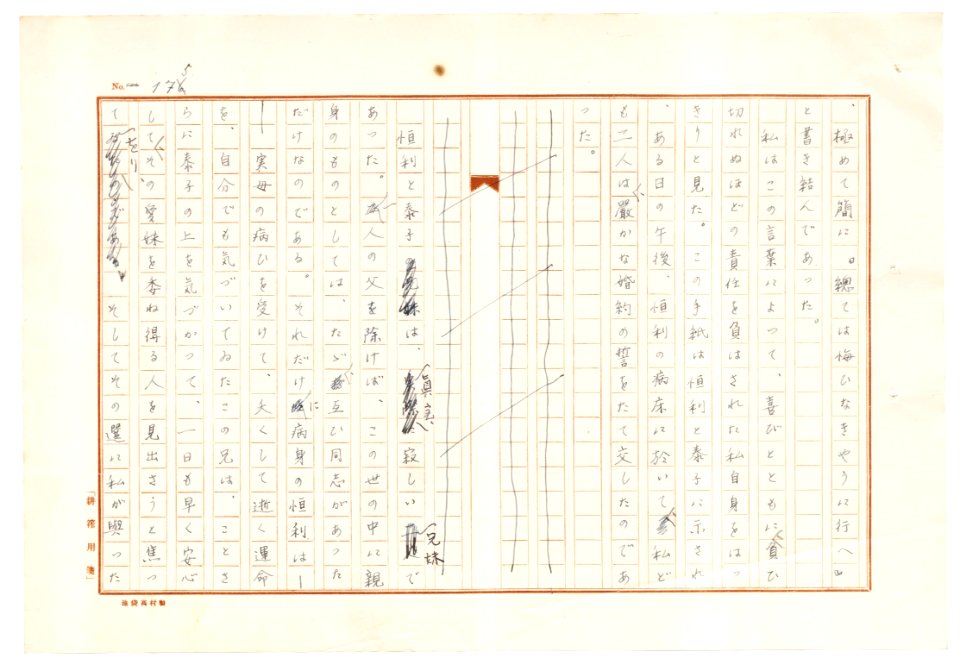 No. 175
、極めて簡に。總ては悔ひなきやうに行へ』
と書き結んであった。
私はこの言葉によって、喜びとともに負ひ
切れぬほどの責任を負はされた私自身をはっ
きりと見た。この手紙は恒利と泰子に示され
、ある日の午後、恒利の病床に於いて私ど
も二人は嚴かな婚約の誓をたて交したのであ
った。
恒利と泰子は、眞実、寂しい兄妹で
あった。人の父を除けば、この世の中に親
身のものとしては、たゞ互ひ同志があった
だけなのである。それだけに病身の恒利は―
―実母の病ひを受けて、大くして逝く運命
を、自分でも気づいてゐたこの兄は、ことさ
らに泰子の上を気づかって、一日も早く安心
してその愛妹を委ね得る人を見出さうと焦っ
てをり、そしてその選に私が與った
「耕花用箋」
池袋高村製